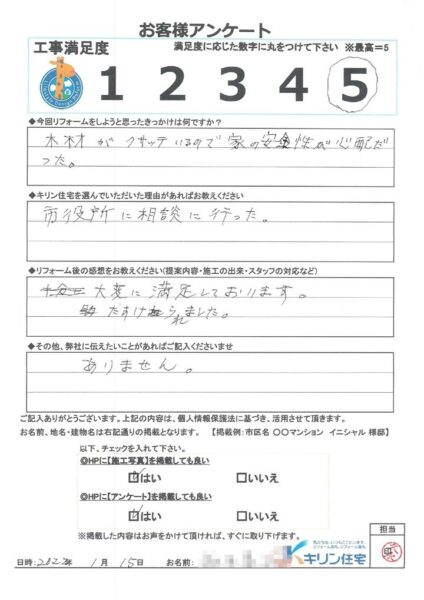 お客様アンケート
工事満足度
満足度に応じた数字に丸をつけて下さい ※最高=5
1 2 3 4 5
◆今回リフォームをしようと思ったきっかけは何ですか?
木材がクサッているので家の安全性が心配だ
った。
◆キリン住宅を選んでいただいた理由があればお教えください
市役所に相談に行った。
◆リフォーム後の感想をお教えください(提案内容・施工の出来・スタッフの対応など)
大変に満足しております。
たすけられました。
◆その他、弊社に伝えたいことがあればご記入くださいませ
ありません。
ご記入ありがとうございます。上記の内容は、個人情報保護法に基づき、活用させて頂きます。
お名前、地名・建物名は右記通りの掲載となります。 【掲載例:市区名 〇〇マンション イニシャル 様邸】
以下、チェックを入れて下さい。
◎HPに【施工写真】を掲載しても良い
はい □いいえ
◎HPに【アンケート】を掲載しても良い
はい □いいえ
※掲載した内容はお声をかけて頂ければ、すぐに取り下げます。
担当
キリン住宅
日時:2023年 1月 15日 お名前: